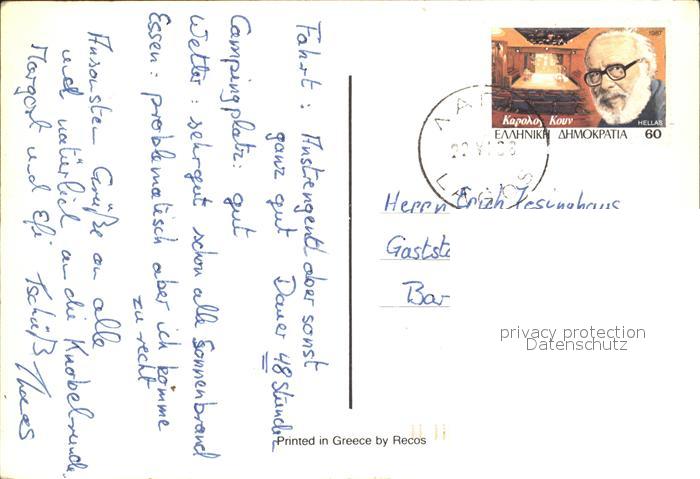 Fahrt: Anstrengend aber sonst
ganz gut Dauer 48 Stunden
Campingplatz: gut
Wetter: sehr gut schon alle Sonnenbrand
Essen: problematisch aber ich komme
zu recht
Ansonsten Grüße an alle
und natürlich an die Knobelrunde
Margert und Efi Tschüß
1987
Κάρολος Κουν
HELLAS
ΕΛΛΗΝΙΚΗ ΔΗΜΟΚΡΑΤΙΑ 60
Herrn Erich
Gastst
Bar
privacy protection
Datenschutz
Printed in Greece by Recos